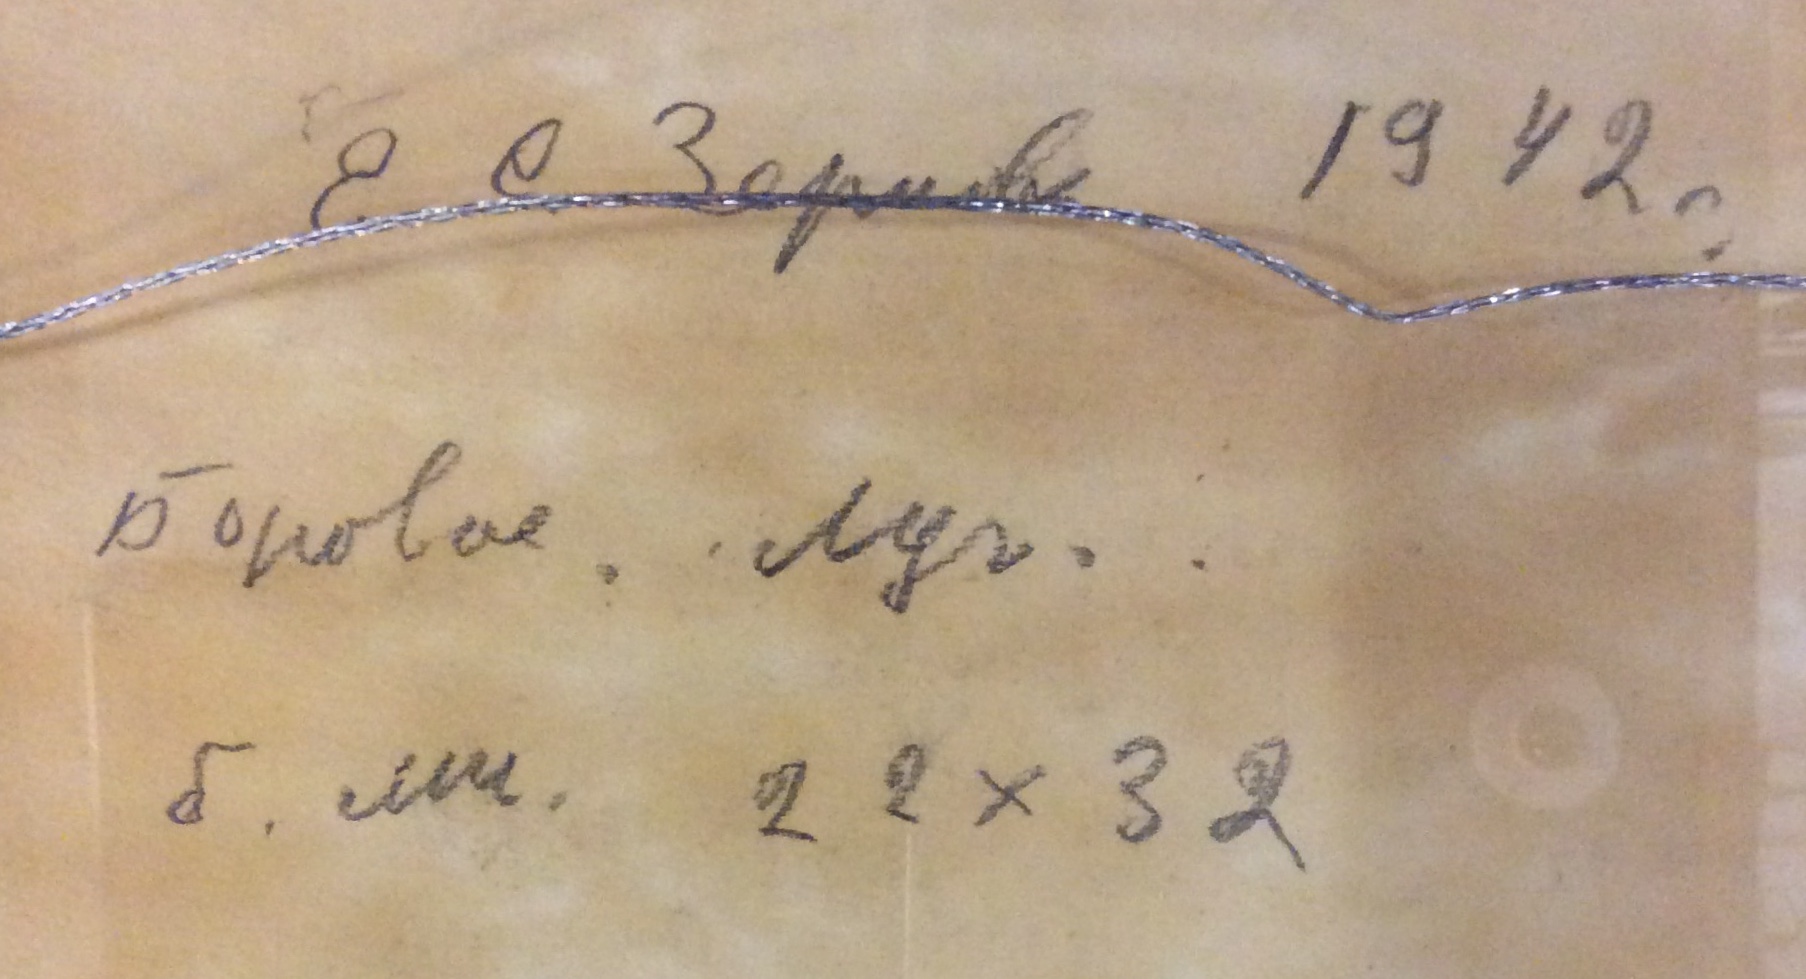 Е С Зернова 1942 г
Боровое. Луг.
б. м. 22 x 32